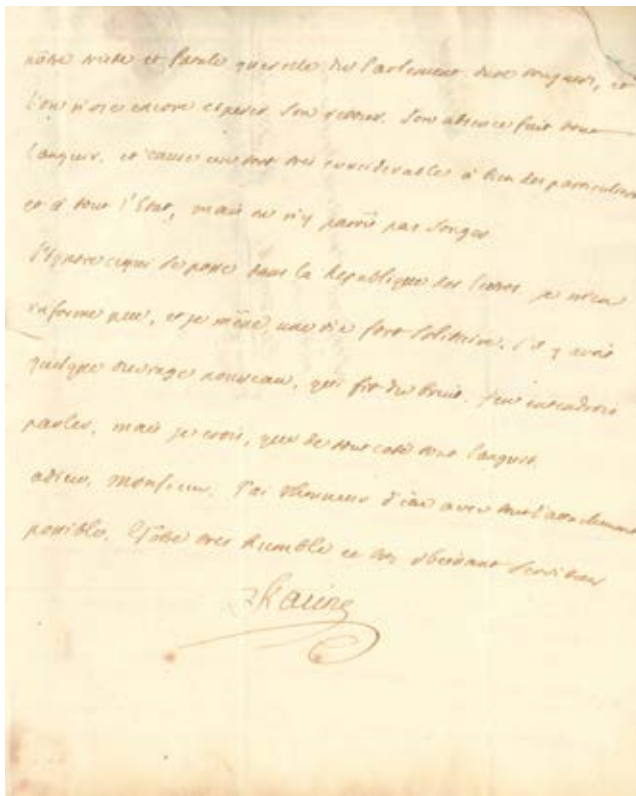 nôtre triste et fatale querelle du Parlement dure toujours, et
l'on n'ose encore esperer son retour. Son absence fait tout
languir, et cause un tort tres considerable à bien des particuliers
et à tout l'Etat, mais on n'y paroît pas songer
J'ignore ce qui se passe dans la Republique des lettres, je m'en
informe peu, et je mène une vie fort solitaire. s'il y avoit
quelque ouvrage nouveau, qui fit du bruit, j'en entendrois
parler, mais je crois, que de tout coté tout languit.
adieu, Monsieur. J'ai l'honneur d'être avec tout l'attachement
possible. Vôtre tres humble et tres obeissant serviteur
Racine